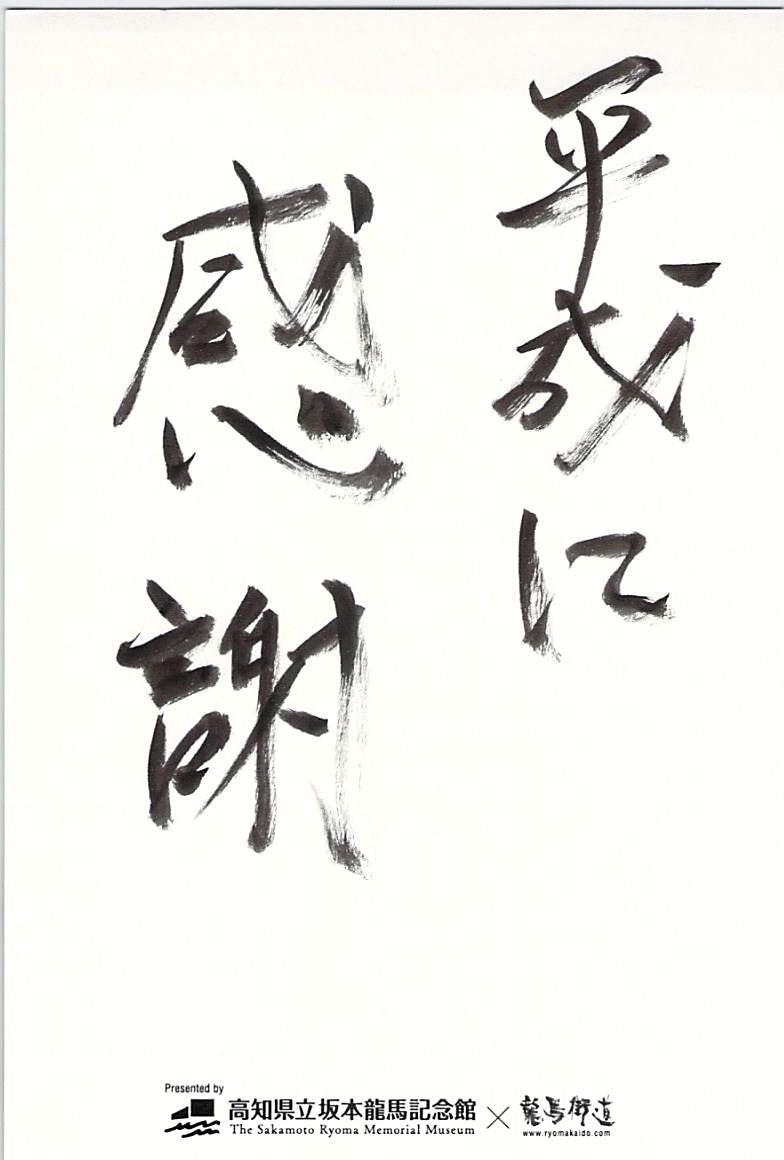 平成に
感謝
Presented by
高知県立坂本龍馬記念館
The Sakamoto Ryoma Memorial Museum
×
龍馬街道
www.ryomakaido.com